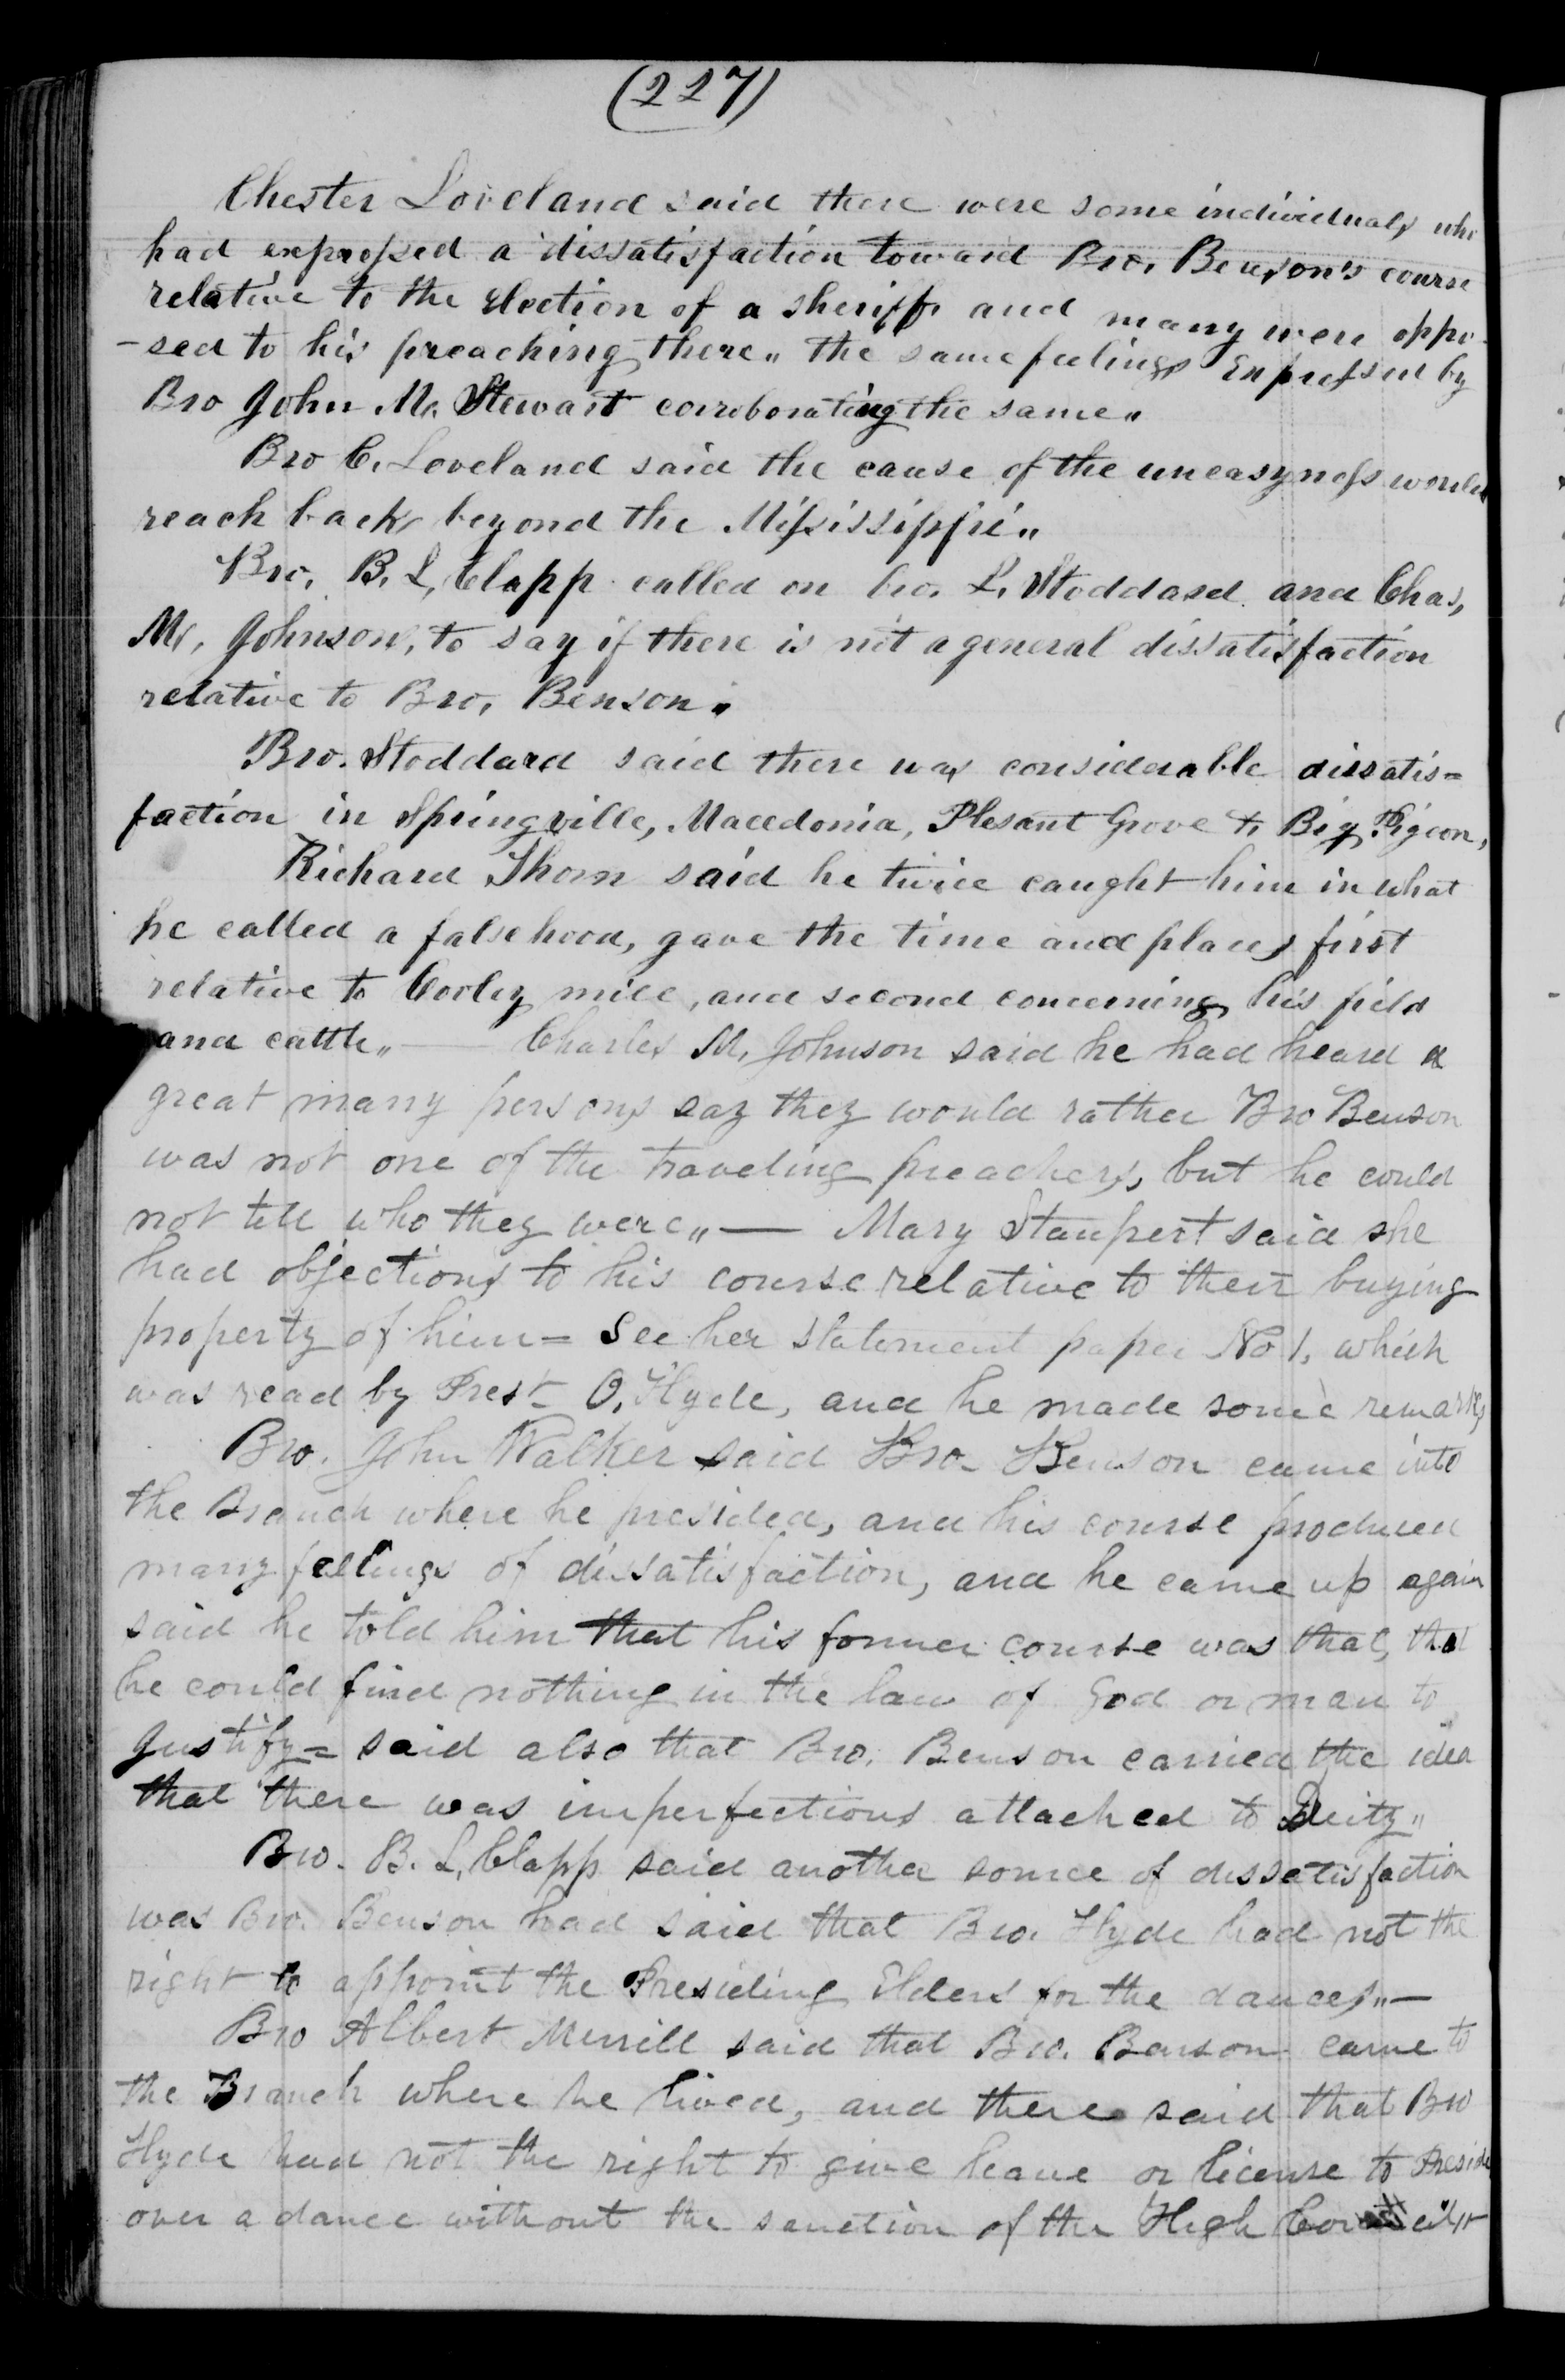 (227)
Chester Loveland said there were some individuals who
had expressed a dissatisfaction toward Bro. Benson's course
relative to the Election of a sheriff, and many were oppo-
-sed to his preaching there„ the same feelings Expressed by
Bro John M. Stewart corroborating the same„
Bro C. Loveland said the cause of the uneasyness would
reach back beyond the Mississippi„
Bro. B. L. Clapp called on bro. L. Stoddard and Chas,
M. Johnson, to say if there is not a general dissatisfaction
relative to Bro. Benson„
Bro. Stoddard said there was considerable dissatis=
faction in Springville, Macedonia, Plesant Grove & Big Pigeon,
Richard Thorn said he twice caught him in what
he called a falsehood, gave the time and places first
relative to Cooley mill, and second concerning his field
and cattle„ — Charles M. Johnson said he had heard a
great many persons say they would rather Bro Benson
was not one of the traveling preachers, but he could
not tell who they were„ — Mary said she
had objections to his course relative to their buying
property of him = See her statement paper No 1, which
was read by Prest. O. Hyde, and he made some remarks
Bro. John Walker said Bro. Benson came into
the Branch where he presided, and his course produced
many feelings of dissatisfaction, and he came up again
said he told him that his former course was that, that
he could find nothing in the law of God or man to
Justify = said also that Bro. Benson carried the idea
that there was imperfections attached to Deity„
Bro. B. L. Clapp said another source of dissatisfaction
was Bro. Benson had said that Bro. Hyde had not the
right to appoint the Presiding Elders for the dances„ —
Bro Albert Merrill said that Bro. Benson came to
the Branch where he lived, and there said that Bro
Hyde had not the right to give leave or license to Preside
over a dance without the sanction of the High Council„